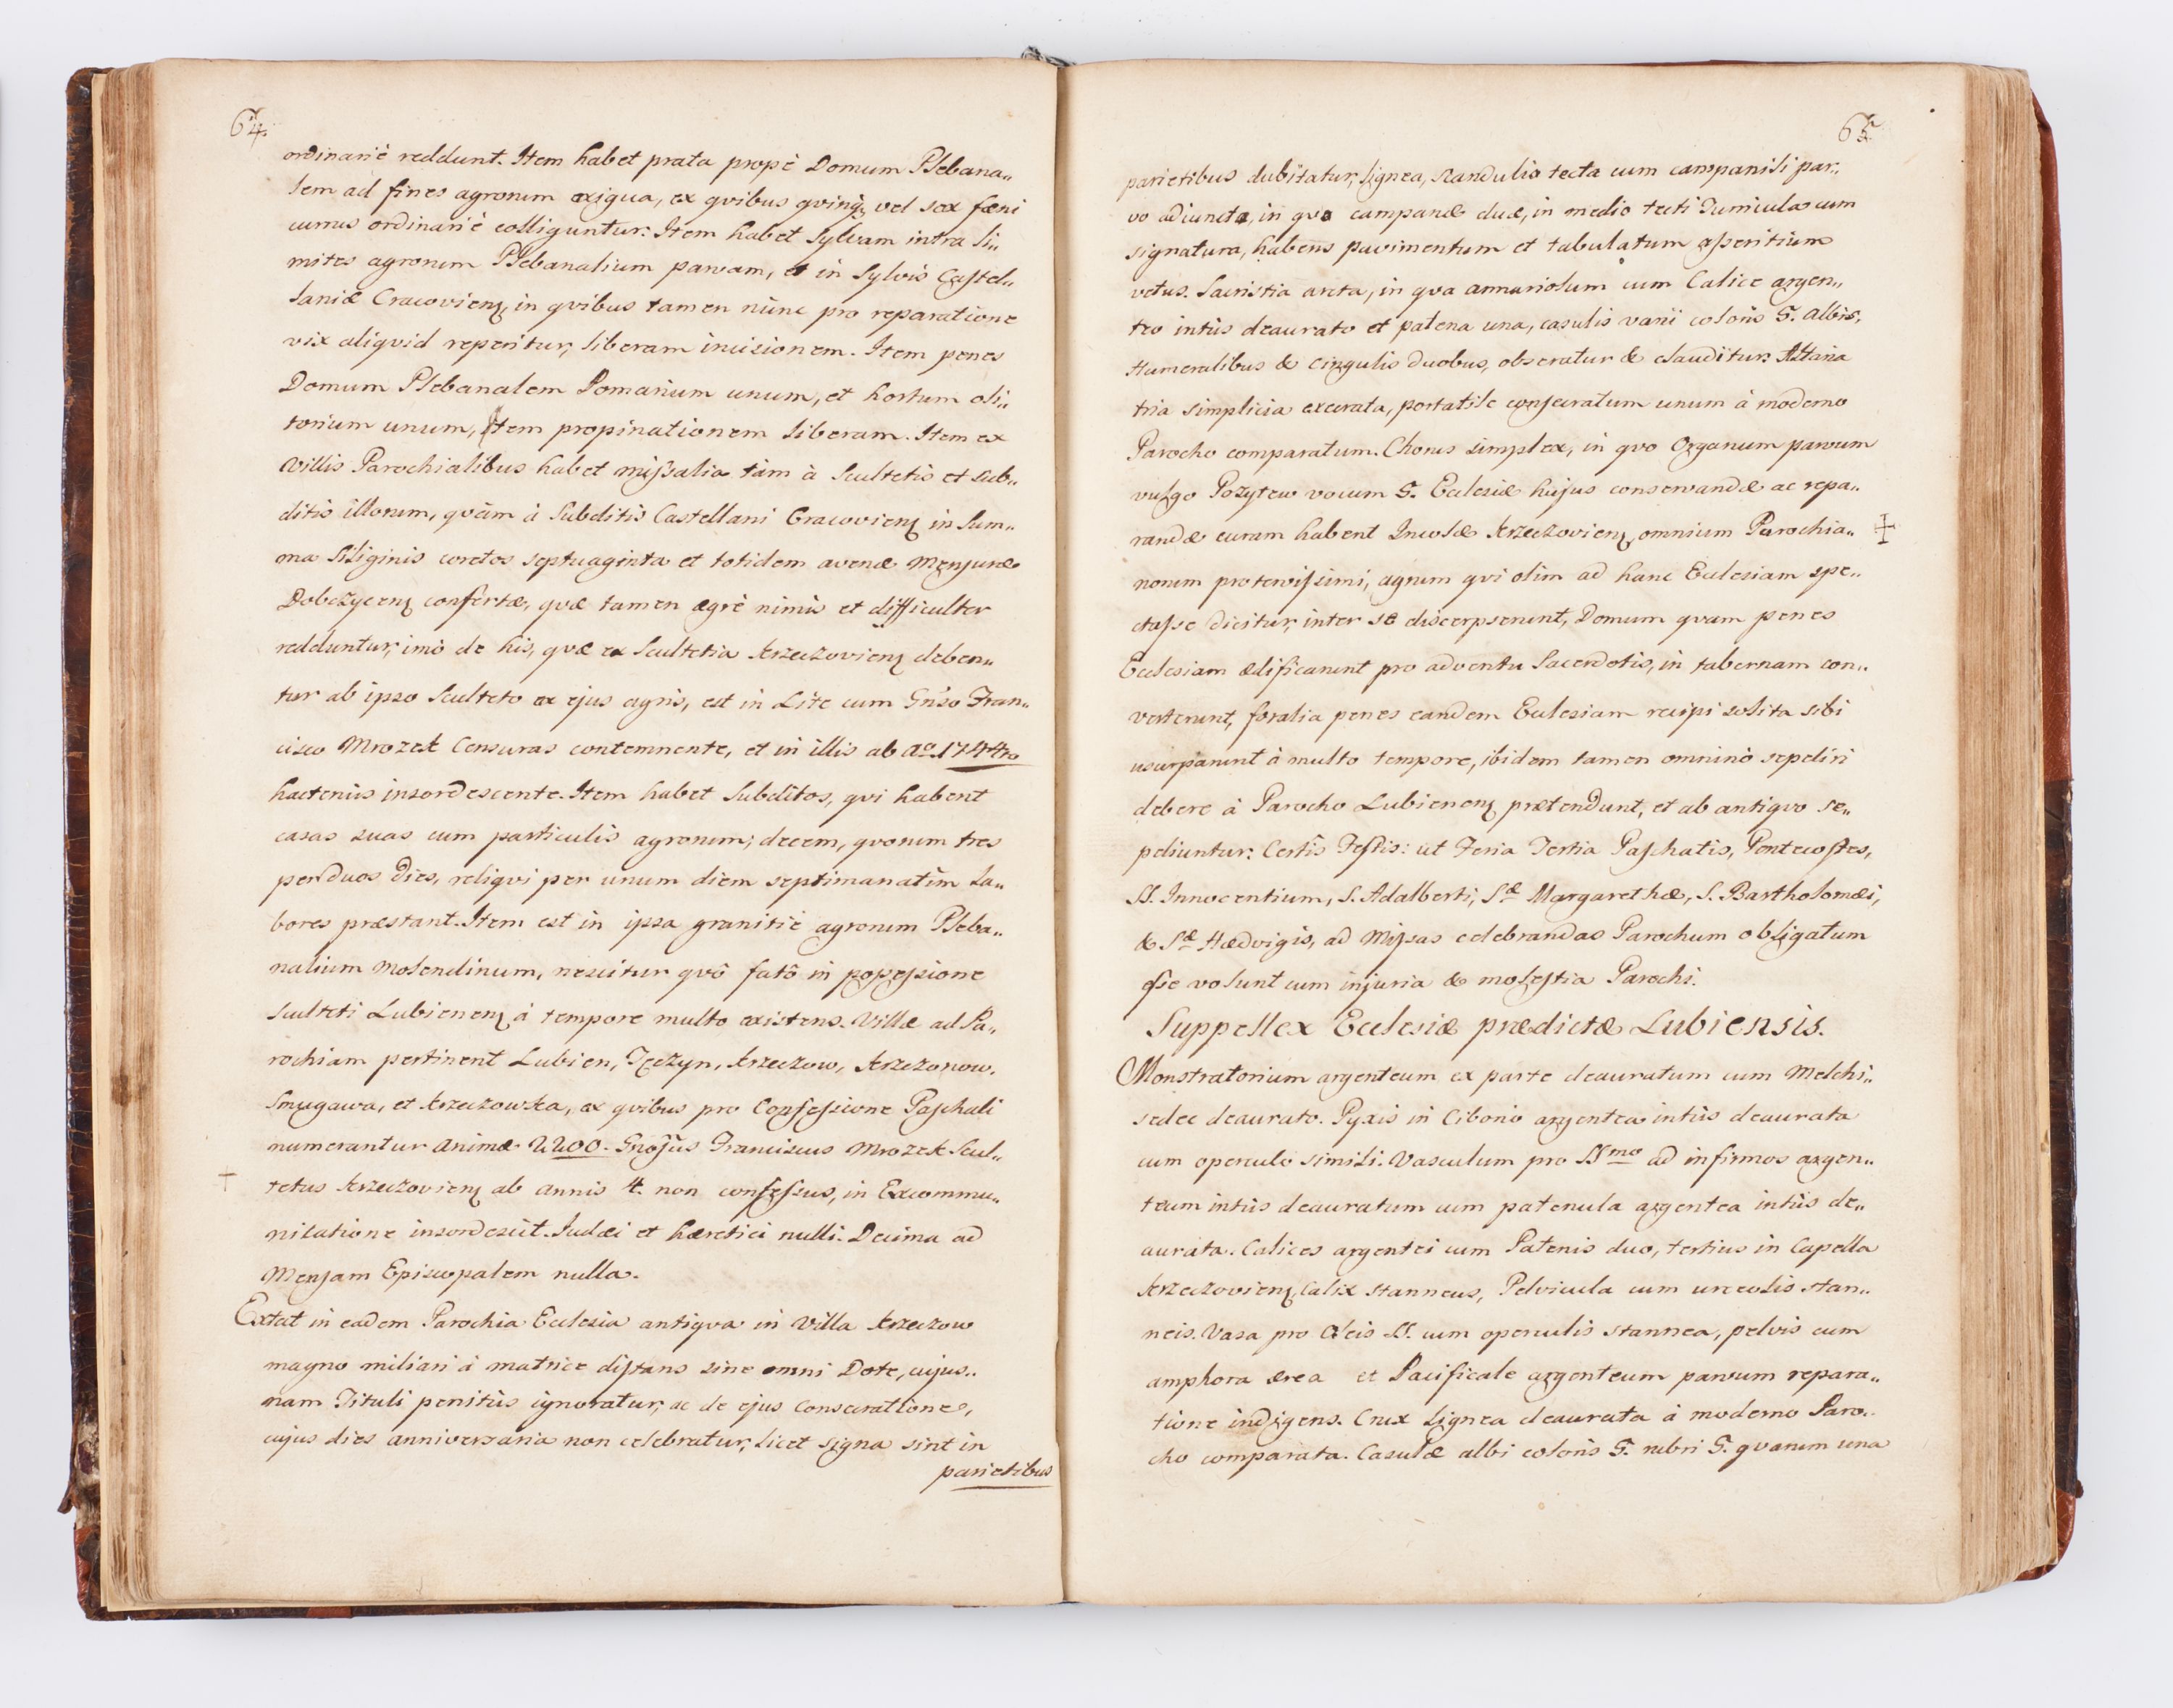 64.
ordinariè reddunt. Item habet prata propè Domum Plebana„
lem ad fines agrorum exigua, ex qvibus qvinq; vel sex fæni
currus ordinariè colliguntur. Item habet Sylvam intra li„
mites agrorum Plebanalium parvam, et in Sylvis Castel„
laniæ Cracovien: in qvibus tamen nunc pro reparatione
vix aliqvid reperitur, liberam incisionem. Item penes
Domum Plebanalem Pomarium unum, et hortum oli„
torium unum, Item propinationem liberam. Item ex
Villis Parochialibus habet missalia tàm à Scultetis et sub„
ditis illorum, qvàm à Subditis Castellani Cracovien: in Sum„
ma Siliginis coretos septuaginta et totidem avenæ Mensuræ
Dobczycen: confertæ, qvæ tamen ægrè nimis et difficulter
redduntur, imò de his, qvæ ex Scultetia Krzeczovien: deben„
tur ab ipso Sculteto ex ejus agris, est in Lite cum Gñso Fran„
cisco Mrozek Censuras contemnente, et in illis ab Aº 1744to
hactenùs insordescente. Item habet Subditos, qvi habent
casas suas cum particulis agrorum; decem, qvorum tres
per duos dies, reliqvi per unum diem septimanatìm la„
bores præstant. Item est in ipsa granitie agrorum Pleba„
nalium Molendinum, nescitur qvô fatô in possessione
Sculteti Lubienen: à tempore multo existens. Villæ ad Pa„
rochiam pertinent Lubien, Tęczyn, Krzeczow, Krzczonow,
Smugawa, et Krzeczowka, ex qvibus pro Confessione Paschali
numerantur Animæ 2200. Gñosus Franciscus Mrozek Scul„
tetus Krzeczovien: ab annis 4. non confessus, in Excommu„
nicatione insordescit. Judæi et hæretici nulli. Decima ad
Mensam Episcopalem nulla.
Extat in eadem Parochia Ecclesia antiqva in Villa Krzeczow
magno miliari à matrice distans sine omni Dote, cujus„
nam Tituli penitùs ignoratur, ac de ejus Consecratione,
cujus dies anniversaria non celebratur, licet signa sint in
parietibus
65.
parietibus dubitatur, lignea, scandulis tecta cum campanili par„
vo adiuncto, in qvo campanæ duæ, in medio tecti Turricula cum
signatura, habens pavimentum et tabulatum asseritium
vetus. Sacristia arcta, in qva armariolum cum Calice argen„
teo intùs deaurato et patena una, casulis varii coloris 5. albis,
Humeralibus & cingulis duobus, obseratur & clauditur. Altaria
tria simplicia execrata, portatile consecratum unum à moderno
Parocho comparatum. Chorus simplex, in qvo Organum parvum
vulgo Pozytew vocum 5. Ecclesiæ hujus conservandæ ac repa„
randæ curam habent Incolæ Krzeczovien: omnium Parochia„
norum protervissimi, agrum qvi olim ad hanc Ecclesiam spe„
ctasse dicitur, inter se discerpserunt, Domum qvam penes
Ecclesiam ædificarunt pro adventu Sacerdotis, in tabernam con„
verterunt, foralia penes eandem Ecclesiam recipi solita sibi
usurparunt à multo tempore, ibidem tamen omninò sepeliri
debere à Parocho Lubienen: prætendunt, et ab antiqvo se„
peliuntur. Certis Festis: ut Feria Tertia Paschatis, Pentecostes,
SS. Innocentium, S. Adalberti, Sæ Margarethæ, S. Bartholomæi,
& Sæ Hædvigis, ad Missas celebrandas Parochum obligatum
esse volunt cum injuria & molestia Parochi.
Suppellex Ecclesiæ prædictæ Lubiensis.
Monstratorium argenteum ex parte deauratum cum Melchi„
sedec deaurato. Pyxis in Ciborio argentea intùs deaurata
cum operculo simili. Vasculum pro SSmo ad infirmos argen„
teum intùs deauratum cum patenula argentea intùs de„
aurata. Calices argentei cum Patenis duo, tertius in Capella
Krzeczovien: Calix stanneus, Pelvicula cum urceolis stan„
neis. Vasa pro Oleis SS. cum operculis stannea, pelvis cum
amphora ærea et Pacificale argenteum parvum repara„
tione indigens. Crux Lignea deaurata à moderno Paro„
cho comparata. Casulæ albi coloris 5. rubri 5. qvarum una